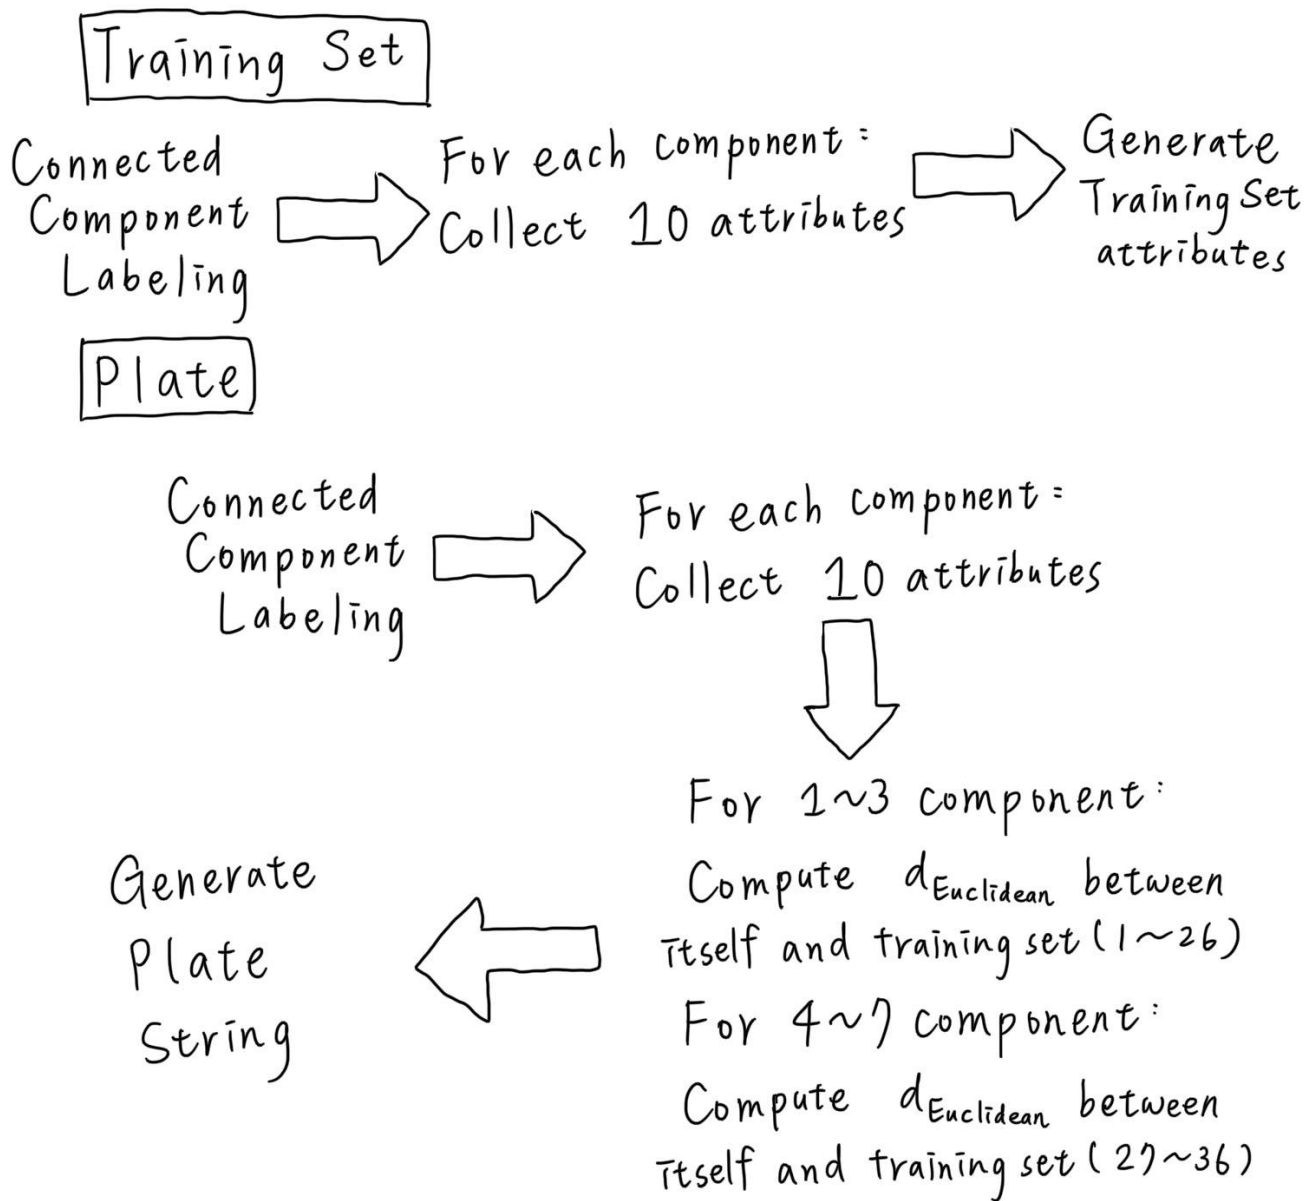 Training Set
Connected
Component
Labeling
For each component:
Collect 10 attributes
Generate
Training Set
attributes
Plate
Connected
Component
Labeling
For each component:
Collect 10 attributes
For 1~3 component:
Compute dEuclidean between
itself and training set (1~26)
For 4~7 component:
Compute dEuclidean between
itself and training set (27~36)
Generate
Plate
String